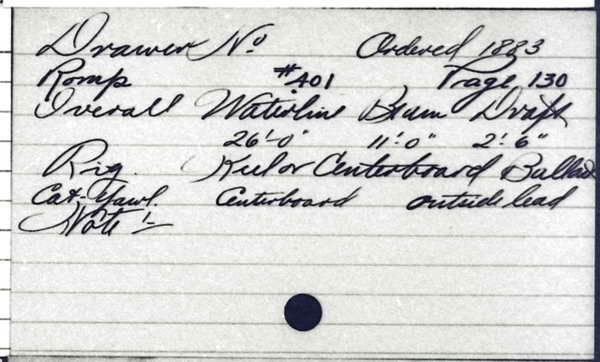 Drawer No Ordered 1883
Romp #401 Page 130
Overall Waterline Beam Draft
26'-0" 11'-0" 2'-6"
Rig. Keel or Centerboard Ballast
Cat. Yawl. Centerboard outside lead
Note :-